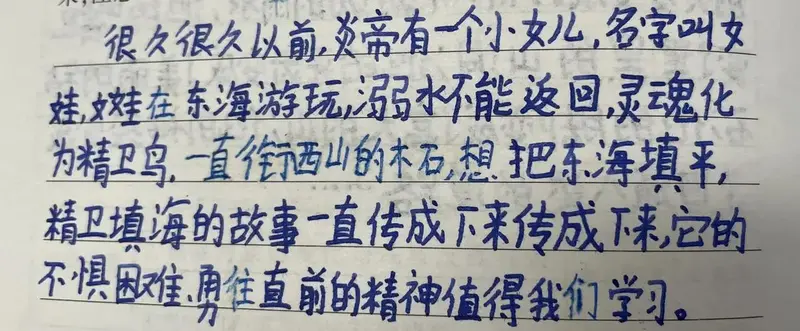 很久很久以前,炎帝有一个小女儿,名字叫女
娃,女娃在东海游玩,溺水不能返回,灵魂化
为精卫鸟,一直衔西山的木石,想把东海填平,
精卫填海的故事一直传成下来传成下来,它的
不惧困难、勇往直前的精神值得我们学习。